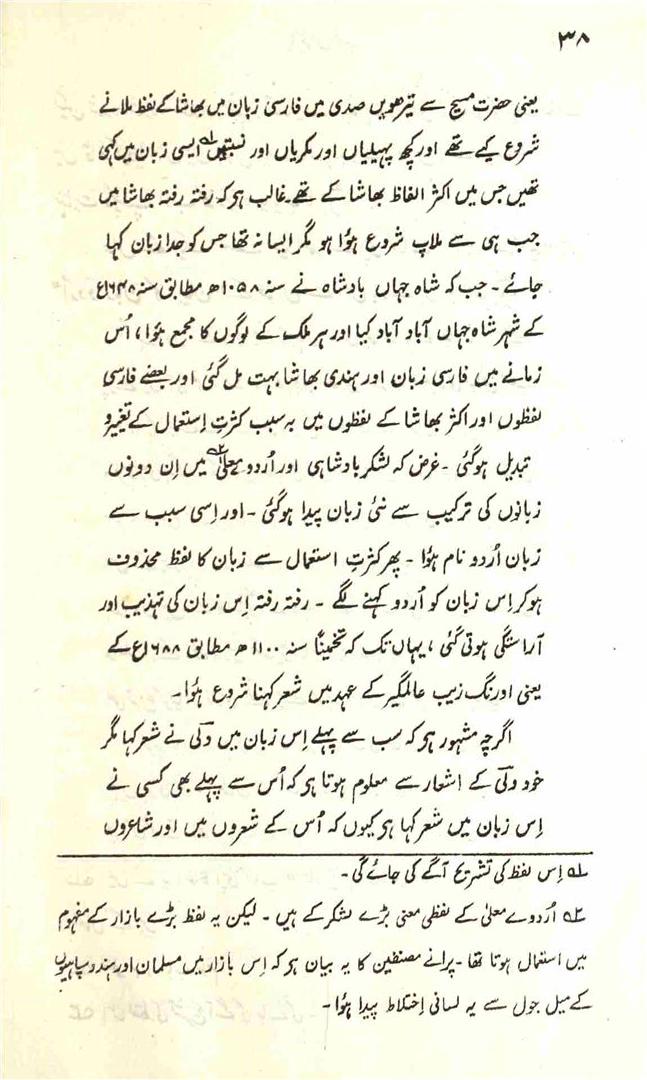 ۳۸
یعنی حضرت مسیح سے تیرھویں صدی میں فارسی زبان میں بھاشا کے لفظ ملانے
شروع کیے تھے اور کچھ پہیلیاں اور مکریاں اور نسبتیں۱ ایسی زبان میں کہی
تھیں جس میں اکثر الفاظ بھاشا کے تھے۔ غالب ہو کہ رفتہ رفتہ بھاشا میں
جب ہی سے ملاپ شروع ہؤا ہو مگر ایسا نہ تھا جس کو جدا زبان کہا
جائے۔ جب کہ شاہ جہاں بادشاہ نے سنہ ۱۰۵۸ھ مطابق سنہ ۱۶۴۸ع
کے شہر شاہ جہاں آباد آباد کیا اور ہر ملک کے لوگوں کا مجمع ہؤا، اُس
زمانے میں فارسی زبان اور ہندی بھاشا بہت مل گئی اور بعضے فارسی
لفظوں اور اکثر بھاشا کے لفظوں میں بہ سبب کثرتِ اِستعمال کے تغیر و
تبدیل ہوگئی۔ غرض کہ لشکر بادشاہی اور اُردوے معلیٰ۲ میں اِن دونوں
زبانوں کی ترکیب سے نئی زبان پیدا ہوگئی۔ اور اِسی سبب سے
زبان اُردو نام ہؤا۔ پھر کثرتِ استعمال سے زبان کا لفظ محذوف
ہوکر اِس زبان کو اُردو کہنے لگے۔ رفتہ رفتہ اِس زبان کی تہذیب اور
آراستگی ہوتی گئی، یہاں تک کہ تخمیناً سنہ ۱۱۰۰ھ مطابق ۱۶۸۸ع کے
یعنی اورنگ زیب عالمگیر کے عہد میں شعر کہنا شروع ہؤا۔
اگرچہ مشہور ہو کہ سب سے پہلے اِس زبان میں ولی نے شعر کہا مگر
خود ولی کے اشعار سے معلوم ہوتا ہو کہ اُس سے پہلے بھی کسی نے
اِس زبان میں شعر کہا ہو کیوں کہ اُس کے شعروں میں اور شاعروں
۱ اِس لفظ کی تشریح آگے کی جائے گی۔
۲ اُردوے معلیٰ کے لفظی معنی بڑے لشکر کے ہیں۔ لیکن یہ لفظ بڑے بازار کے مفہوم
میں استعمال ہوتا تھا۔ پرانے مصنفین کا یہ بیان ہو کہ اِس بازار میں مسلمان اور ہندو سپاہیوں
کے میل جول سے یہ لسانی اِختلاط پیدا ہؤا۔